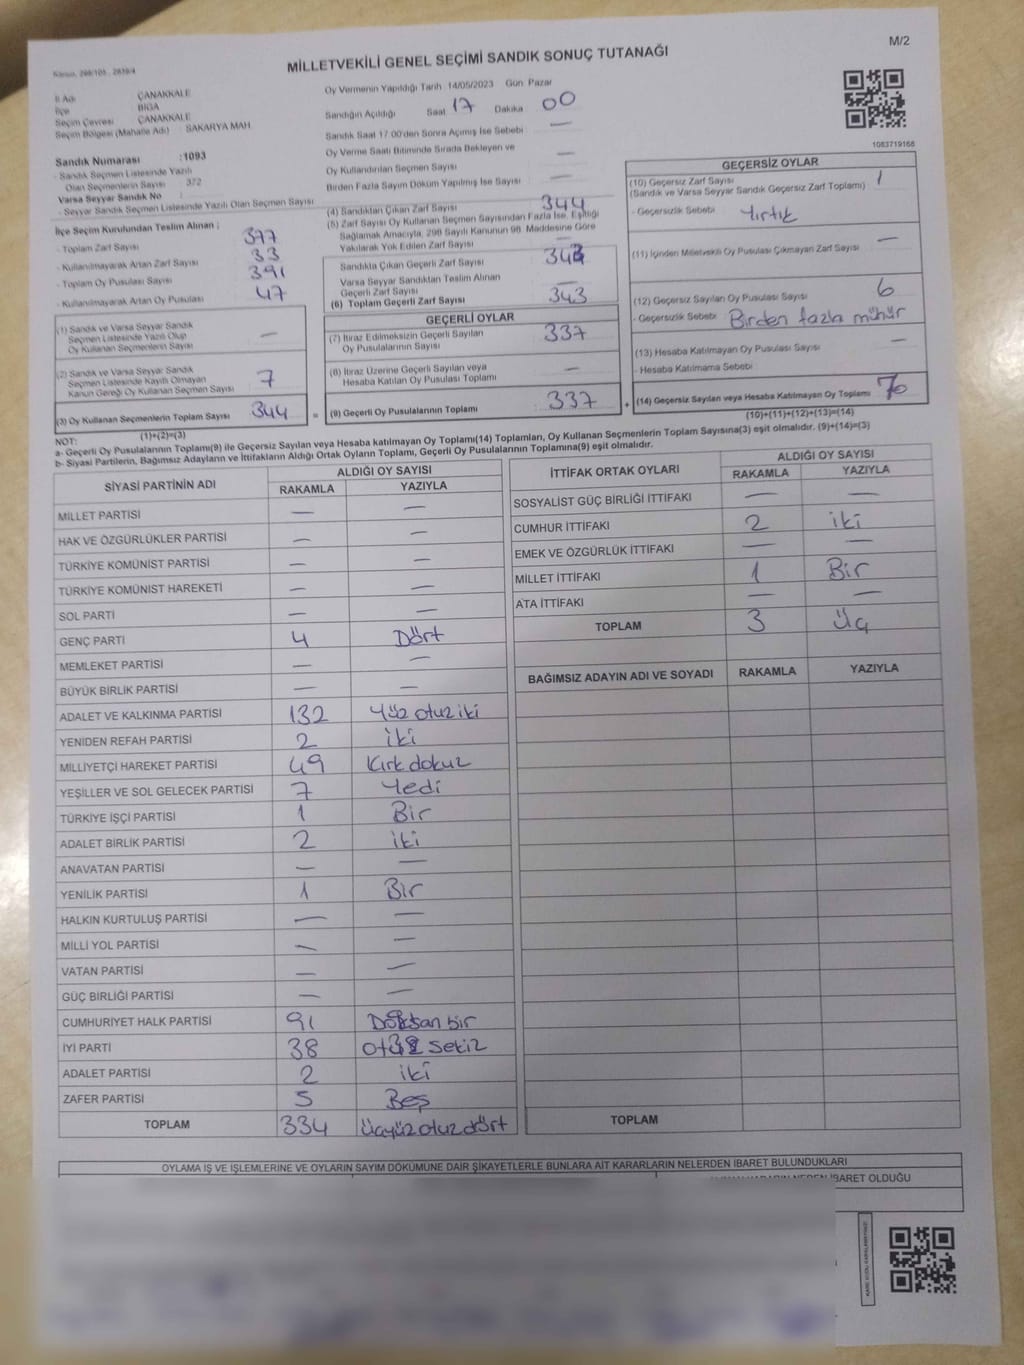 M/2
MİLLETVEKİLİ GENEL SEÇİMİ SANDIK SONUÇ TUTANAĞI
İl Adı ÇANAKKALE
İlçe BİGA
Seçim Çevresi ÇANAKKALE
Seçim Bölgesi (Mahalle Adı) SAKARYA MAH.
Sandık Numarası :1093
- Sandık Seçmen Listesinde Yazılı
Olan Seçmenlerin Sayısı 372
Varsa Seyyar Sandık No :
- Seyyar Sandık Seçmen Listesinde Yazılı Olan Seçmen Sayısı
İlçe Seçim Kurulundan Teslim Alınan ;
- Toplam Zarf Sayısı 377
- Kullanılmayarak Artan Zarf Sayısı 33
- Toplam Oy Pusulası Sayısı 391
- Kullanılmayarak Artan Oy Pusulası 47
(1) Sandık ve Varsa Seyyar Sandık
Seçmen Listesinde Yazılı Olup
Oy Kullanan Seçmenlerin Sayısı —
(2) Sandık ve Varsa Seyyar Sandık
Seçmen Listesinde Kayıtlı Olmayan
Kanun Gereği Oy Kullanan Seçmen Sayısı 7
(3) Oy Kullanan Seçmenlerin Toplam Sayısı 344
(1)+(2)=(3)
Oy Vermenin Yapıldığı Tarih 14/05/2023 Gün Pazar
Sandığın Açıldığı Saat 17 Dakika 00
Sandık Saat 17.00'den Sonra Açılmış İse Sebebi —
Oy Verme Saati Bitiminde Sırada Bekleyen ve
Oy Kullandırılan Seçmen Sayısı —
Birden Fazla Sayım Döküm Yapılmış İse Sayısı —
(4) Sandıktan Çıkan Zarf Sayısı 344
(5) Zarf Sayısı Oy Kullanan Seçmen Sayısından Fazla İse, Eşitliği
Sağlamak Amacıyla, 298 Sayılı Kanunun 98. Maddesine Göre
Yakılarak Yok Edilen Zarf Sayısı —
Sandıkta Çıkan Geçerli Zarf Sayısı 343
Varsa Seyyar Sandıktan Teslim Alınan
Geçerli Zarf Sayısı —
(6) Toplam Geçerli Zarf Sayısı 343
GEÇERLİ OYLAR
(7) İtiraz Edilmeksizin Geçerli Sayılan
Oy Pusulalarının Sayısı 337
(8) İtiraz Üzerine Geçerli Sayılan veya
Hesaba Katılan Oy Pusulası Toplamı —
= (9) Geçerli Oy Pusulalarının Toplamı 337
1083719168
GEÇERSİZ OYLAR
(10) Geçersiz Zarf Sayısı 1
(Sandık ve Varsa Seyyar Sandık Geçersiz Zarf Toplamı)
- Geçersizlik Sebebi : Yırtık
(11) İçinden Milletvekili Oy Pusulası Çıkmayan Zarf Sayısı —
(12) Geçersiz Sayılan Oy Pusulası Sayısı 6
- Geçersizlik Sebebi : Birden fazla mühür
(13) Hesaba Katılmayan Oy Pusulası Sayısı —
- Hesaba Katılmama Sebebi :
+ (14) Geçersiz Sayılan veya Hesaba Katılmayan Oy Toplamı 7
(10)+(11)+(12)+(13)=(14)
NOT:
a- Geçerli Oy Pusulalarının Toplamı(9) ile Geçersiz Sayılan veya Hesaba katılmayan Oy Toplamı(14) Toplamları, Oy Kullanan Seçmenlerin Toplam Sayısına(3) eşit olmalıdır. (9)+(14)=(3)
b- Siyasi Partilerin, Bağımsız Adayların ve İttifakların Aldığı Ortak Oyların Toplamı, Geçerli Oy Pusulalarının Toplamına(9) eşit olmalıdır.
SİYASİ PARTİNİN ADI ALDIĞI OY SAYISI
RAKAMLA YAZIYLA
MİLLET PARTİSİ — —
HAK VE ÖZGÜRLÜKLER PARTİSİ — —
TÜRKİYE KOMÜNİST PARTİSİ — —
TÜRKİYE KOMÜNİST HAREKETİ — —
SOL PARTİ — —
GENÇ PARTİ 4 Dört
MEMLEKET PARTİSİ — —
BÜYÜK BİRLİK PARTİSİ — —
ADALET VE KALKINMA PARTİSİ 132 Yüz otuz iki
YENİDEN REFAH PARTİSİ 2 iki
MİLLİYETÇİ HAREKET PARTİSİ 49 Kırk dokuz
YEŞİLLER VE SOL GELECEK PARTİSİ 7 Yedi
TÜRKİYE İŞÇİ PARTİSİ 1 Bir
ADALET BİRLİK PARTİSİ 2 iki
ANAVATAN PARTİSİ — —
YENİLİK PARTİSİ 1 Bir
HALKIN KURTULUŞ PARTİSİ — —
MİLLİ YOL PARTİSİ — —
VATAN PARTİSİ — —
GÜÇ BİRLİĞİ PARTİSİ — —
CUMHURİYET HALK PARTİSİ 91 Doksan bir
İYİ PARTİ 38 otuz sekiz
ADALET PARTİSİ 2 iki
ZAFER PARTİSİ 5 Beş
TOPLAM 334 Üçyüz otuz dört
İTTİFAK ORTAK OYLARI ALDIĞI OY SAYISI
RAKAMLA YAZIYLA
SOSYALİST GÜÇ BİRLİĞİ İTTİFAKI — —
CUMHUR İTTİFAKI 2 iki
EMEK VE ÖZGÜRLÜK İTTİFAKI — —
MİLLET İTTİFAKI 1 Bir
ATA İTTİFAKI — —
TOPLAM 3 Üç
BAĞIMSIZ ADAYIN ADI VE SOYADI RAKAMLA YAZIYLA
TOPLAM
OYLAMA İŞ VE İŞLEMLERİNE VE OYLARIN SAYIM DÖKÜMÜNE DAİR ŞİKAYETLERLE BUNLARA AİT KARARLARIN NELERDEN İBARET BULUNDUKLARI
NEDEN İBARET OLDUĞU